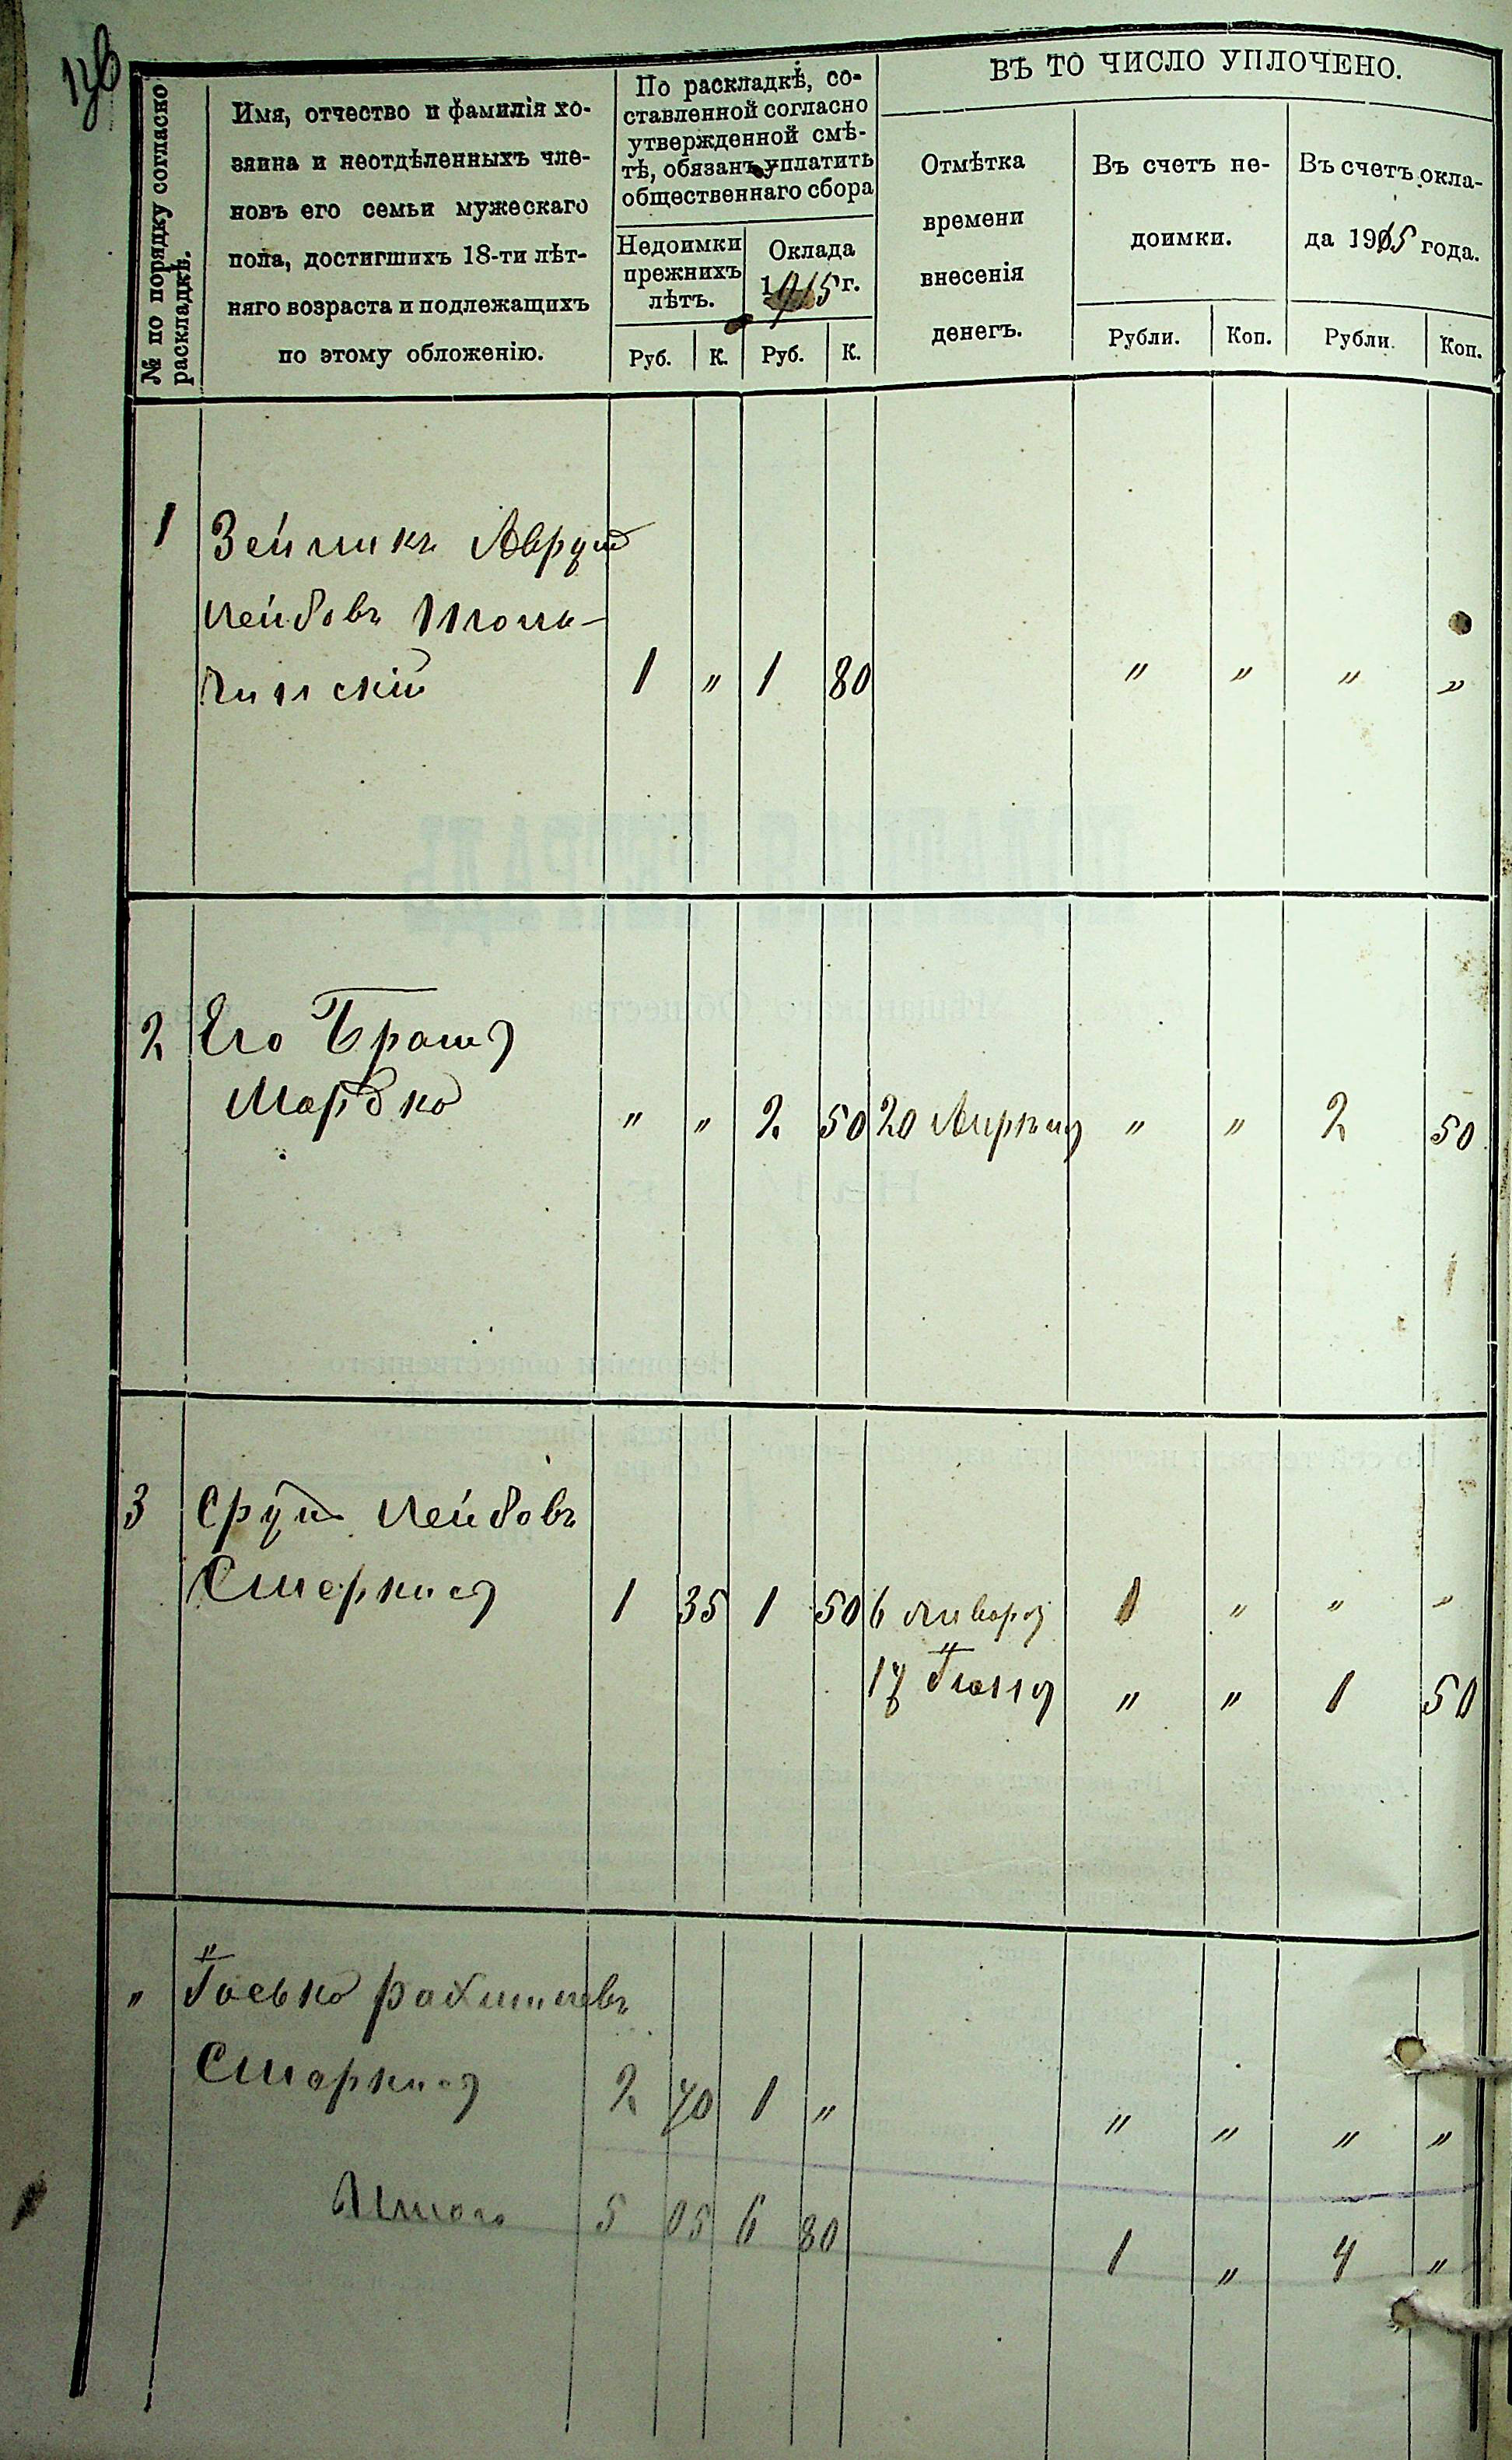 ВЪ ТО ЧИСЛО УПЛОЧЕНО.
№ по порядку согласно
раскладкѣ.
Имя, отчество и фамилія хо-
зяина и неотдѣленныхъ чле-
новъ его семьи мужескаго
пола, достигшихъ 18-ти лѣт-
няго возраста и подлежащихъ
по этому обложенію.
По раскладкѣ, со-
ставленной согласно
утвержденной смѣ-
тѣ, обязанъ уплатить
общественнаго сбора
Недоимки
прежнихъ
лѣтъ.
Оклада
1915 г.
Руб. К. Руб. К.
Отмѣтка
времени
внесенія
денегъ.
Въ счетъ не-
доимки.
Рубли. Коп.
Въ счетъ окла-
да 1915 года.
Рубли. Коп.
1 Зейликъ Аврум
Лейбовъ
1 " 1 80 " " " "
2 Его Братъ
Марько " " 2 50 20 Апрѣля " " 2 50
3 Сруль Лейбовъ
1 35 1 50 6 Января 1 " " "
17 Іюля " " 1 50
" Іосько
2 70 1 " " " " "
Итого 5 05 6 80 1 " 4 "